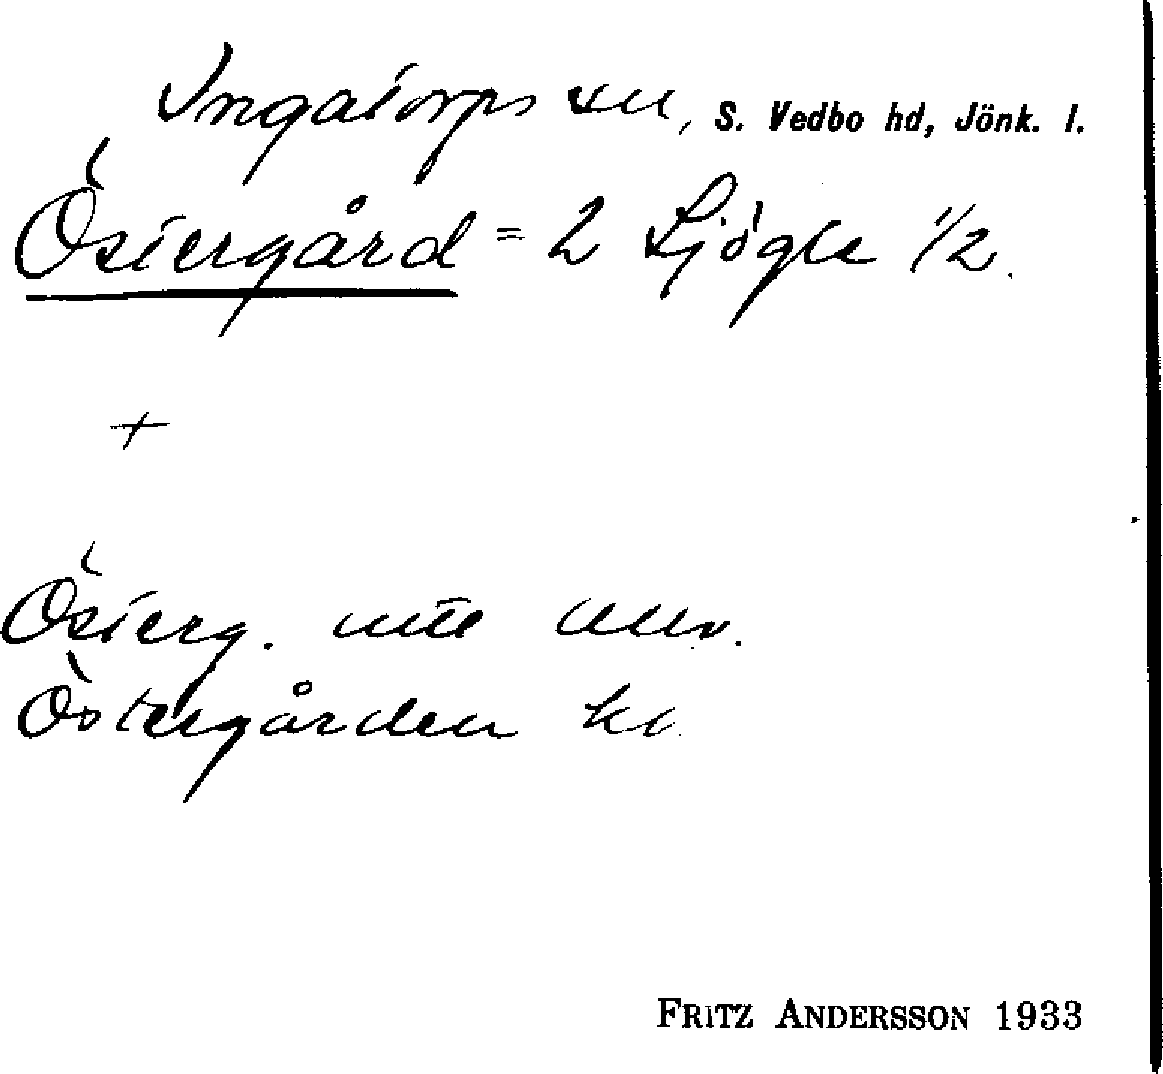 Ingatorps sn, S. Vedbo hd, Jönk. l.
Östergård = 2 Sjögle 1/2.
+
Österg. inte anv.
Östergården kl.
FRITZ ANDERSSON 1933